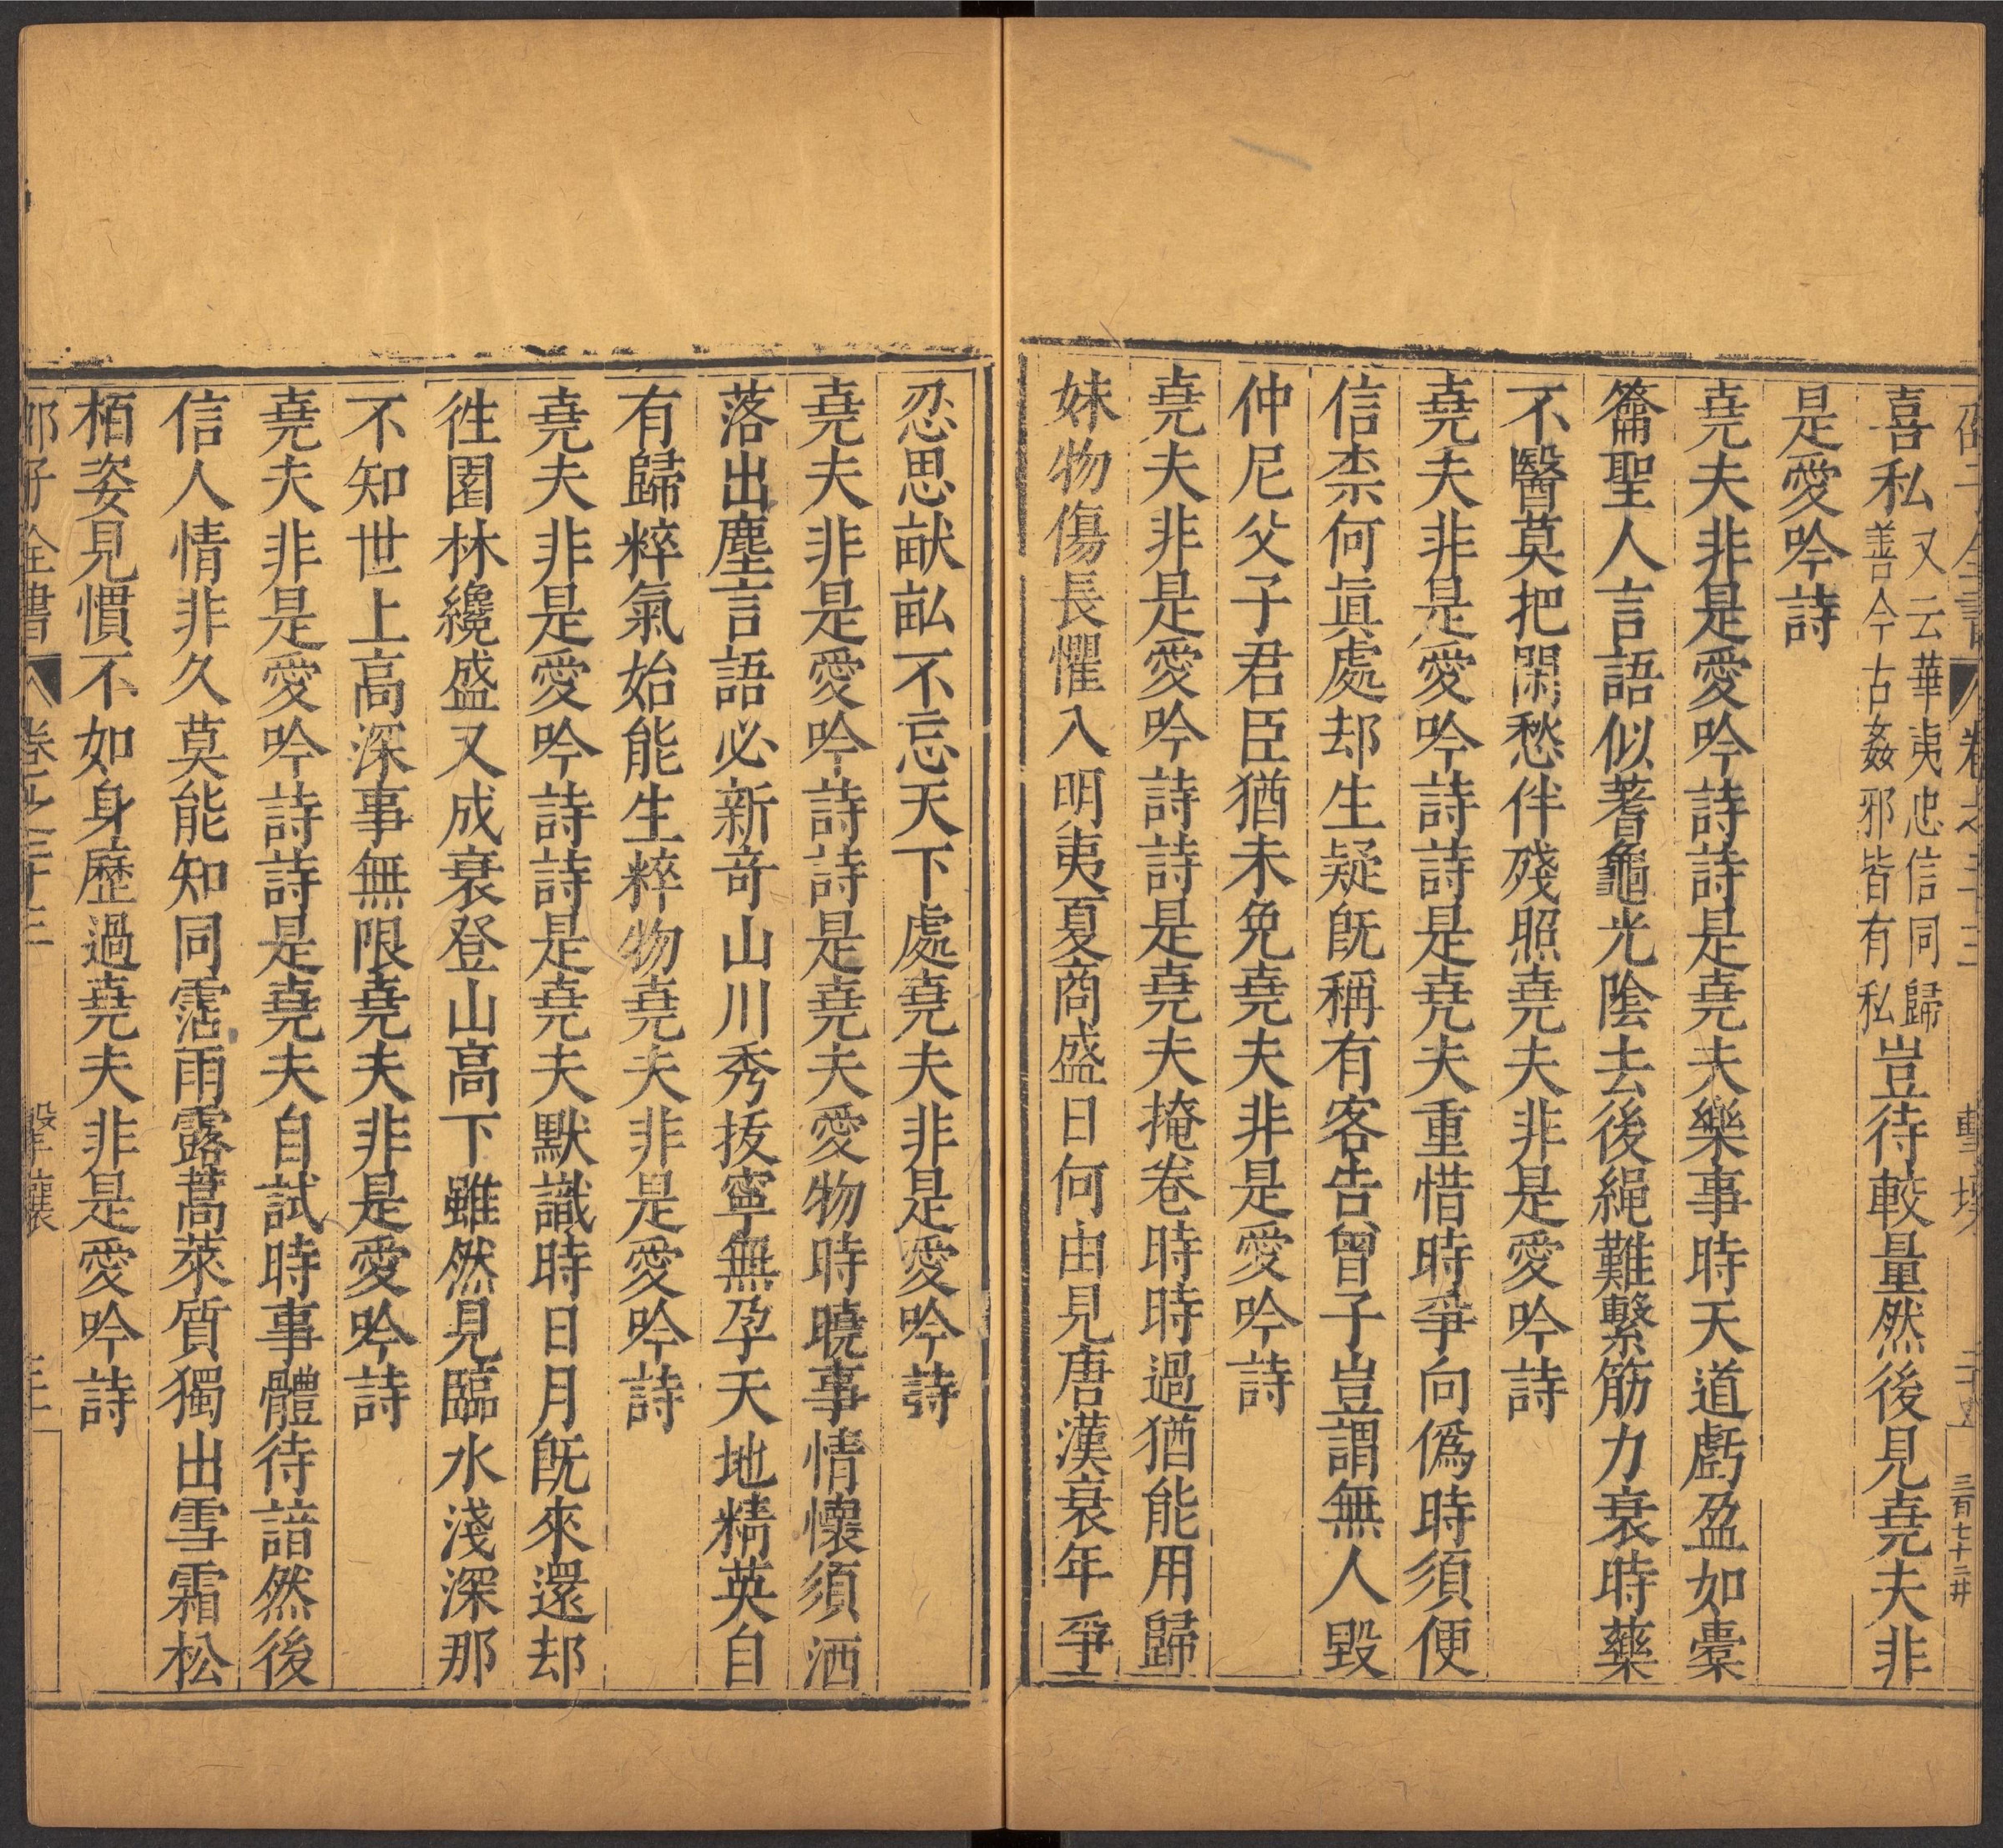 喜私又云華夷忠信同歸善今古姦邪皆有私豈待較量然後見堯夫非
是愛吟詩
堯夫非是愛吟詩詩是堯夫樂事時天道虧盈如橐
籥聖人言語似蓍龜光陰去後繩難繫筋力衰時藥
不醫莫把閑愁伴殘照堯夫非是愛吟詩
堯夫非是愛吟詩詩是堯夫重惜時爭向偽時須便
信柰何眞處却生疑旣稱有客告曾子豈謂無人毀
仲尼父子君臣猶未免堯夫非是愛吟詩
堯夫非是愛吟詩詩是堯夫掩卷時時過猶能用歸
妹物傷長懼入明夷夏商盛日何由見唐漢衰年爭
忍思畎畝不忘天下處堯夫非是愛吟詩
堯夫非是愛吟詩詩是堯夫愛物時曉事情懷須洒
落出塵言語必新竒山川秀拔寧無孕天地精英自
有歸粹氣始能生粹物堯夫非是愛吟詩
堯夫非是愛吟詩詩是堯夫默識時日月旣來還却
徃園林纔盛又成衰登山高下雖然見臨水淺深那
不知世上高深事無限堯夫非是愛吟詩
堯夫非是愛吟詩詩是堯夫自試時事體待諳然後
信人情非久莫能知同霑雨露蒿萊質獨出雪霜松
栢姿見慣不如身歷過堯夫非是愛吟詩